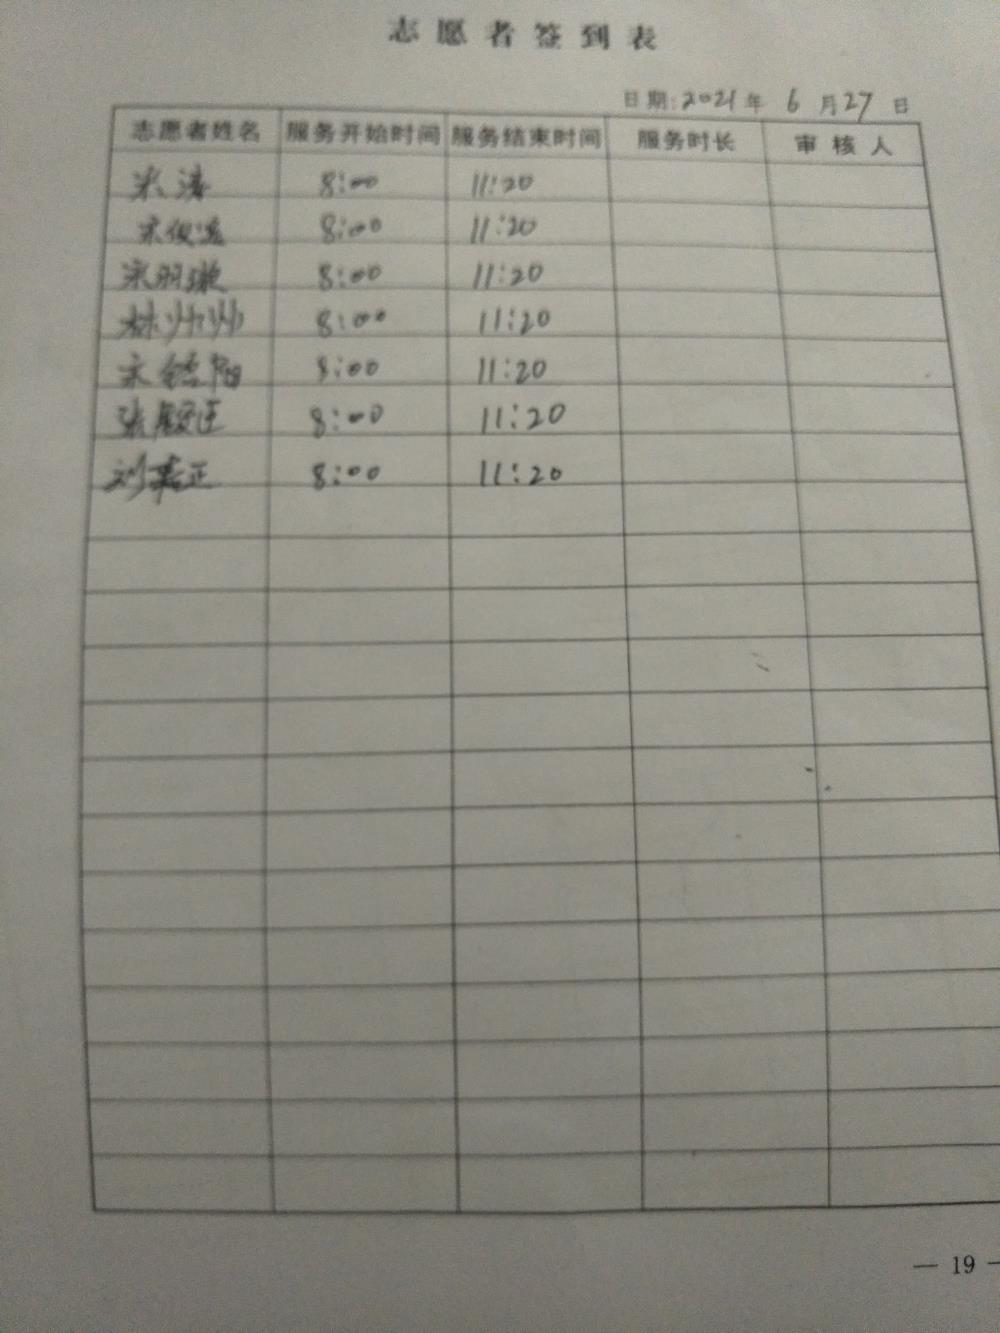 志愿者签到表
日期:2021年 6月27日
志愿者姓名 服务开始时间 服务结束时间 服务时长 审核人
宋涛 8:00 11:20
宋俊逸 8:00 11:20
宋羽璇 8:00 11:20
林州州 8:00 11:20
宋 阳 8:00 11:20
张殿匡 8:00 11:20
刘 正 8:00 11:20
— 19 —